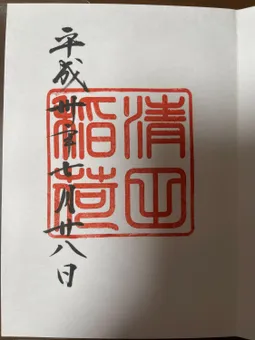 平成卅年七月廿八日
清
稲荷